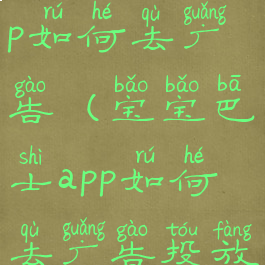 rú hé qù guǎng
p如何去广
gào bǎo bǎo bā
告(宝宝巴
shì rú hé
士app如何
qù guǎng gào tóu fàng
去广告投放